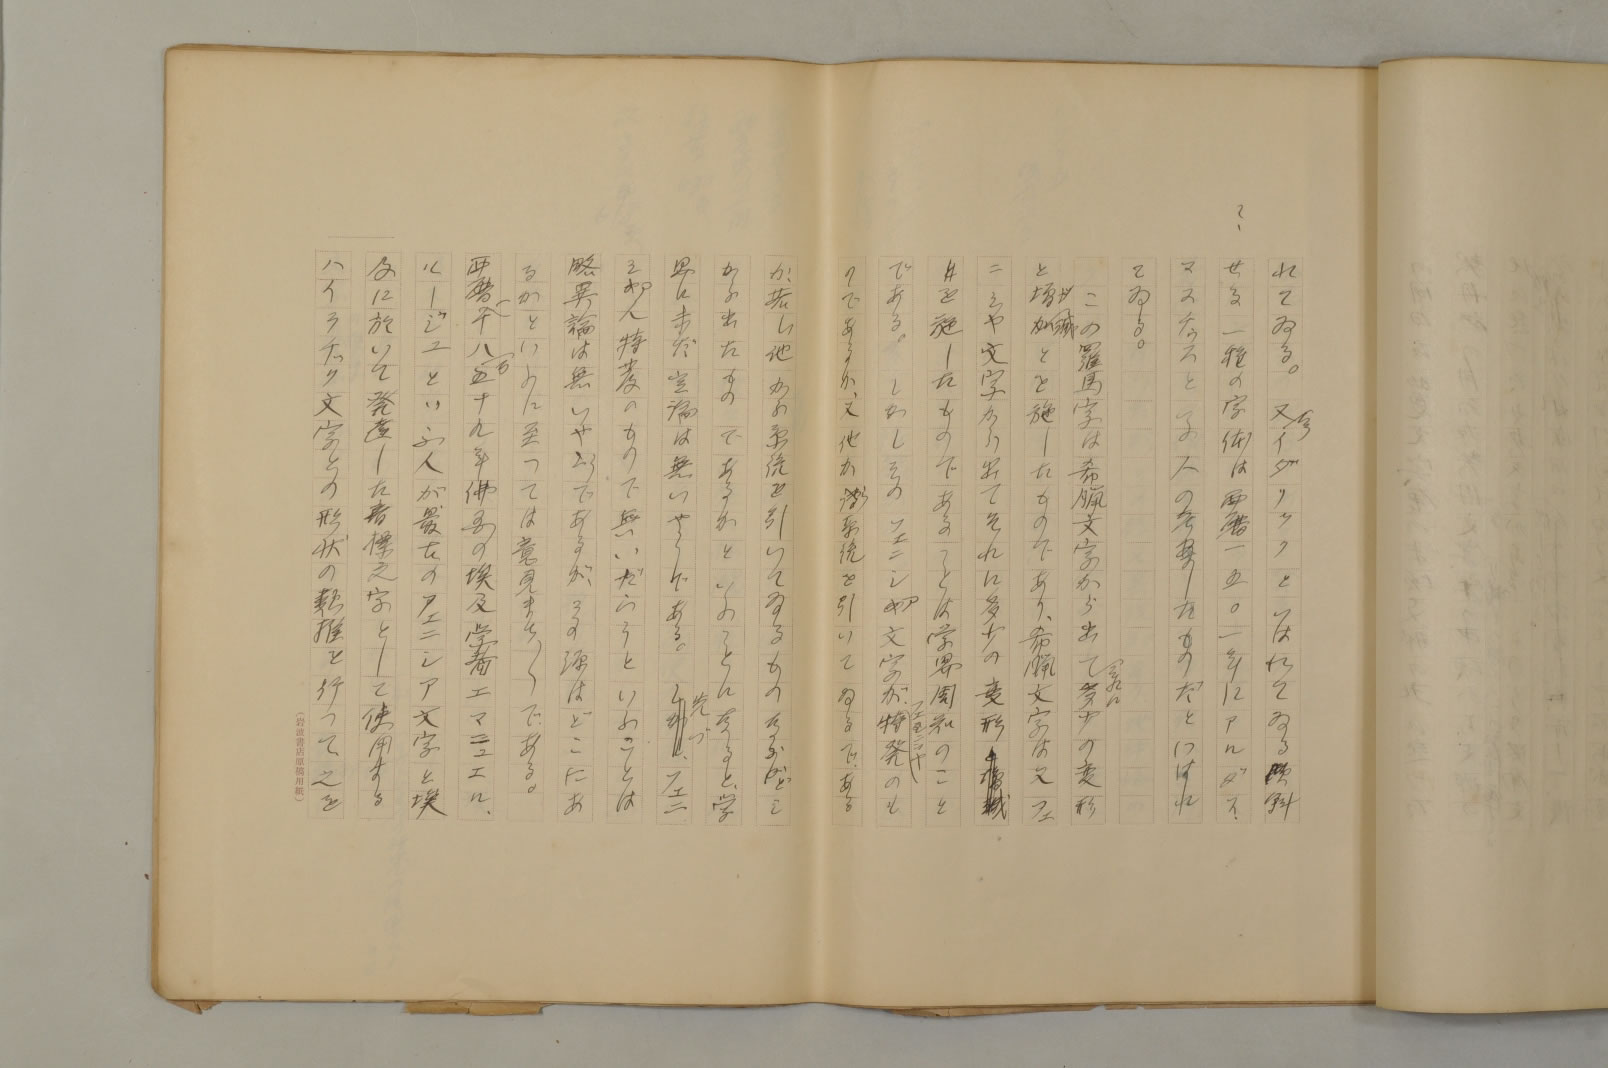 れてゐる。又今イタリックといはれてゐる傾斜
せる一種の字体は西暦一五〇一年にアルダス、
マヌチウスといふ人の考案したものだといはれ
てゐる。
この羅馬字は希臘文字から出て夫れに多少の変形
と増減とを施したものであり、希臘文字は又フェ
ニシヤ文字から出てそれに多少の変形
を施したものであることは学界周知のこと
である。しかしその フェニシヤ文字が、特発のも
のであるか、又他から系統を引いてゐるで、ある
が、若し他から系統を引いてゐるものならばどこ
から出たものであるかといふことになると、学
界に未だ定論は無いやうである。先づフェニ
シヤ人特発のもので無いだらうといふことは
略異論は無いやうであるが、その源はどこにあ
るかといふに至つては意見まち〱で、ある。
西暦千八百五十九年佛国の埃及学者エマニュエル、
ルージュといふ人が最古のフェニシア文字と埃
及に於いて発達した音標文字として使用する
ハイラチック文字との形状の較推を行つて之を
(岩波書店原稿用紙)